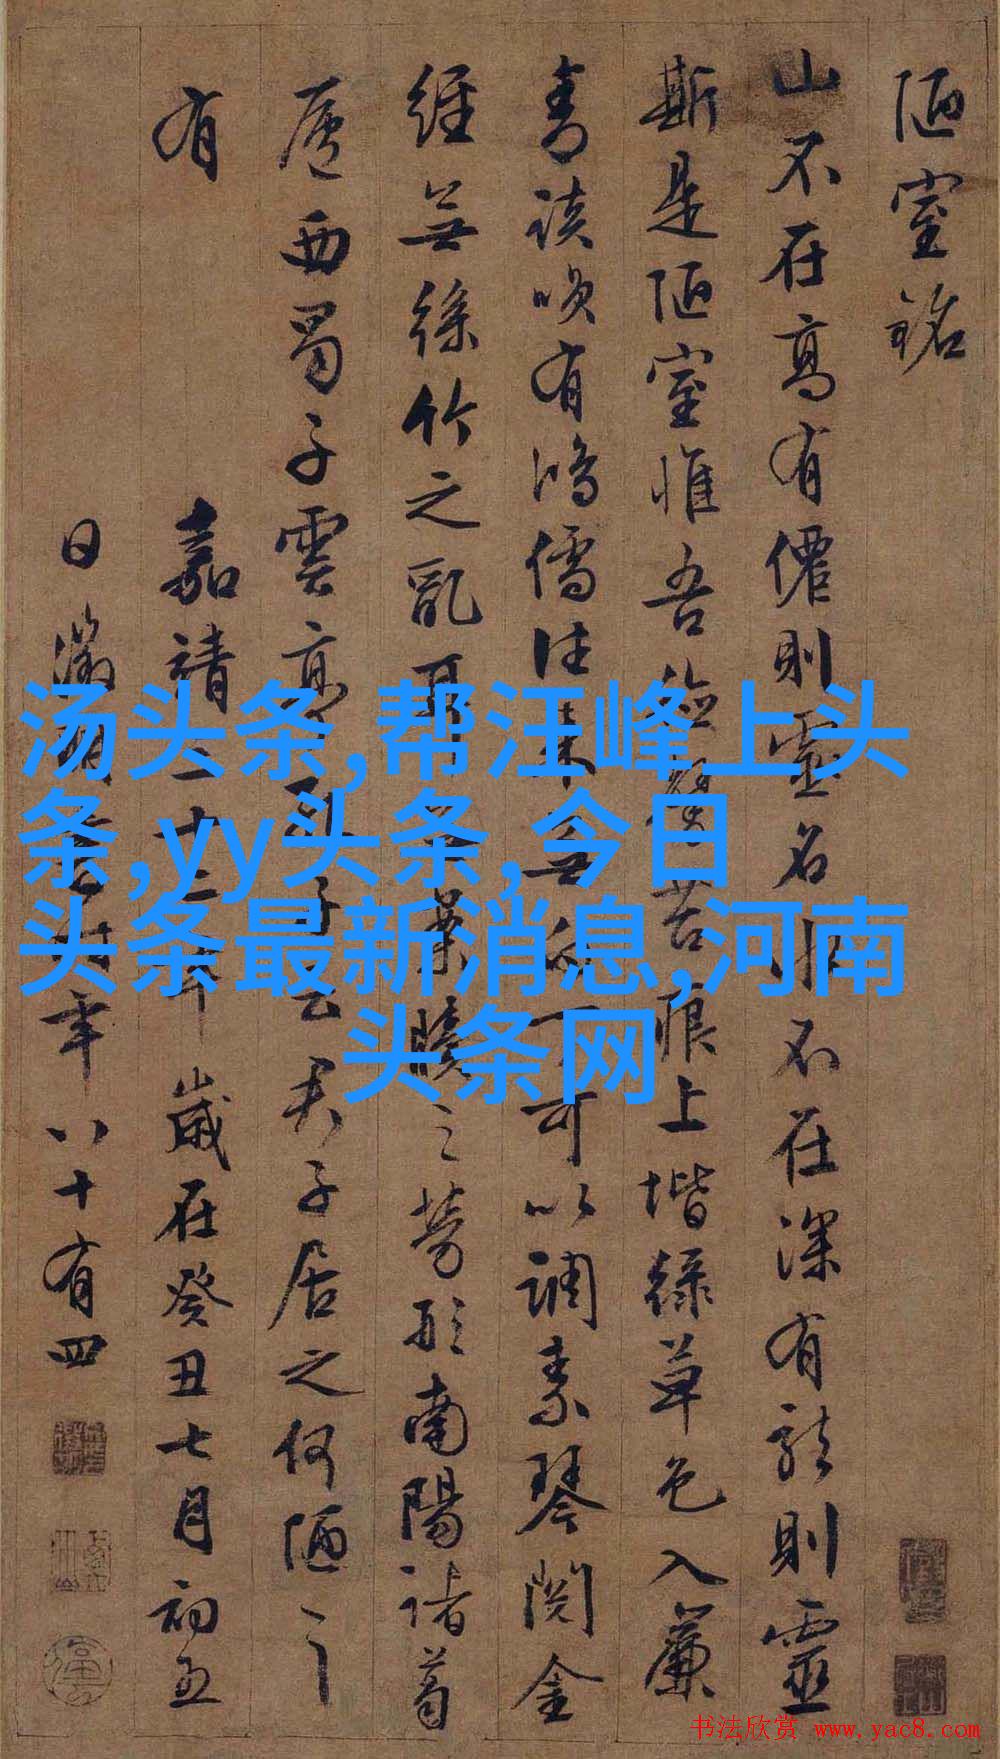 陋室銘
山不在高有僊則靈名水不在深有龍則靈
斯是陋室惟吾德馨苔痕上堦綠草色入簾
青談咲有鴻儒往來無白丁可以調素琴閱金
經無絲竹之亂耳無案牘之勞形南陽諸葛
廬西蜀子雲亭孔子云君子居之何陋之
有
嘉靖三十二年歲在癸丑七月初五
日徵明書時年八十有四
汤头条,帮汪峰上头
条,yy头条,今日
头条最新消息,河南
头条网
书法欣赏 www.yac8.com